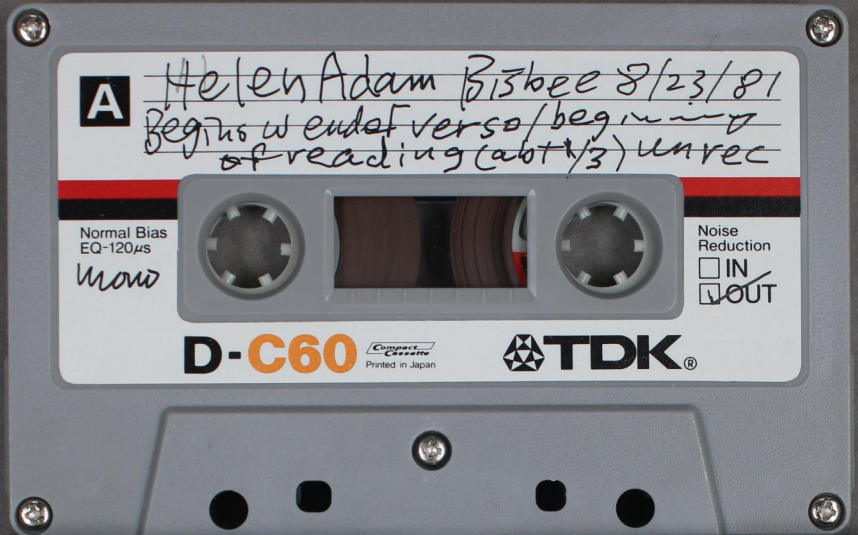 A
Helen Adam Bisbee 8/23/81
Begins w end of verso/beginning
of reading (abt 1/3) unrec
Normal Bias
EQ-120μs
mono
Noise
Reduction
IN
OUT
D-C60
Compact
Cassette
Printed in Japan
TDK®